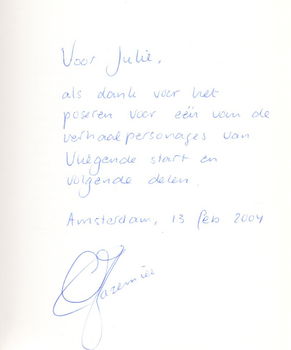 Voor Julie,
als dank voor het
poseren voor één van de
verhaalpersonages van
Vliegende start en
volgende delen.
Amsterdam, 13 feb 2004